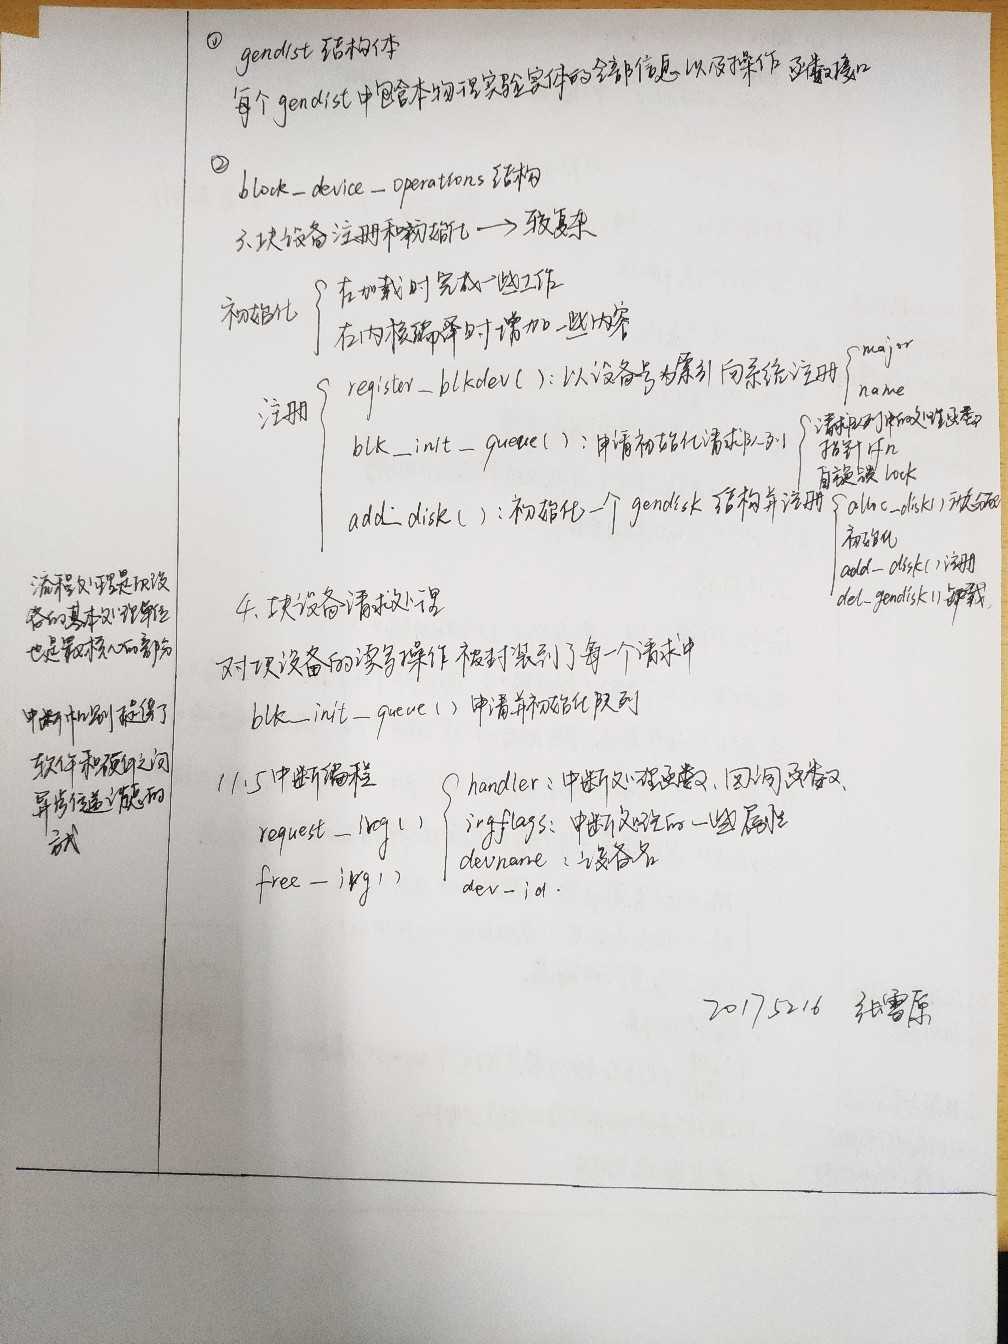 ①
gendist 结构体
每个 gendist 中包含本物理实验实体的全部信息以及操作函数接口
②
block_device_operations 结构
3、块设备注册和初始化 → 较复杂
初始化
在加载时完成一些工作
在内核编译时增加一些内容
注册
register_blkdev(): 以设备号为索引向系统注册
major
name
blk_init_queue(): 申请初始化请求队列
请求队列中的处理函数
指针 rfn
自旋锁 lock
add_disk(): 初始化一个 gendisk 结构并注册
alloc_disk() 动态分配
初始化
add_disk() 注册
del_gendisk() 卸载
4、块设备请求处理
对块设备的读写操作被封装到了每一个请求中
blk_init_queue() 申请并初始化队列
11.5 中断编程
request_irq()
free_irq()
handler: 中断处理函数、回调函数、
irqflags: 中断处理的一些属性
devname: 设备名
dev_id.
流程处理是块设
备的基本处理单位
也是最核心的部份
中断机制提供了
软件和硬件之间
异步传递消息的
方式
20175216 张雪原